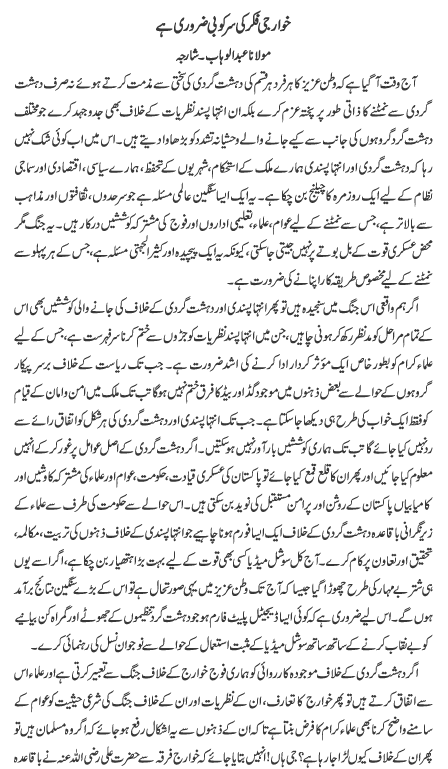 خوارجی فکر کی سرکوبی ضروری ہے
مولانا عبدالوہاب ۔ شارجہ
آج وقت آگیا ہے کہ وطن عزیز کا ہر فرد ہر قسم کی دہشت گردی کی سختی سے مذمت کرتے ہوئے نہ صرف دہشت
گردی سے نمٹنے کا ذاتی طور پر پختہ عزم کرے بلکہ ان انتہا پسند نظریات کے خلاف بھی جدوجہد کرے جو مختلف
دہشت گرد گروہوں کی جانب سے کیے جانے والے وحشیانہ تشدد کو بڑھاوا دیتے ہیں۔ اس میں اب کوئی شک نہیں
رہا کہ دہشت گردی اور انتہا پسندی ہمارے ملک کے استحکام، شہریوں کے تحفظ، ہمارے سیاسی، اقتصادی اور سماجی
نظام کے لیے ایک روزمرہ کا چیلنج بن چکا ہے۔ یہ ایک ایسا سنگین عالمی مسئلہ ہے جو سرحدوں، ثقافتوں اور مذاہب
سے بالاتر ہے، جس سے نمٹنے کے لیے عوام، علماء، تعلیمی اداروں اور فوج کی مشترکہ کوششیں درکار ہیں۔ یہ جنگ مگر
محض عسکری قوت کے بل بوتے پر نہیں جیتی جاسکتی، کیونکہ یہ ایک پیچیدہ اور کثیر الجہتی مسئلہ ہے، جس کے ہر پہلو سے
نمٹنے کے لیے مخصوص طریقہ کار اپنانے کی ضرورت ہے۔
اگر ہم واقعی اس جنگ میں سنجیدہ ہیں تو پھر انتہا پسندی اور دہشت گردی کے خلاف کی جانے والی کوششیں بھی اس
کے تمام مراحل کو مدنظر رکھ کر ہونی چاہیں، جن میں انتہا پسند نظریات کو جڑوں سے ختم کرنا سرفہرست ہے، جس کے لیے
علماء کرام کو بطور خاص ایک مؤثر کردار ادا کرنے کی اشد ضرورت ہے۔ جب تک ریاست کے خلاف برسر پیکار
گروہوں کے حوالے سے بعض ذہنوں میں موجود گڈ اور بیڈ کا فرق ختم نہیں ہوگا تب تک ملک میں امن و امان کے قیام
کو فقط ایک خواب کی طرح ہی دیکھا جاسکتا ہے۔ جب تک انتہا پسندی اور دہشت گردی کی ہر شکل کو اتفاق رائے سے
رد نہیں کیا جائے گا تب تک ہماری کوششیں بارآور نہیں ہوسکتیں۔ اگر دہشت گردی کے اصل عوامل پر غور کرکے انہیں
معلوم کیا جائیں اور پھر ان کا قلع قمع کیا جائے تو پاکستان کی عسکری قیادت، حکومت، عوام اور علماء کی مشترکہ کاوشیں اور
کامیابیاں پاکستان کے روشن اور پرامن مستقبل کی نوید بن سکتی ہیں۔ اس حوالے سے حکومت کی طرف سے علماء کے
زیرنگرانی باقاعدہ دہشت گردی کے خلاف ایک ایسا فورم ہونا چاہیے جو انتہا پسندی کے خلاف ذہنوں کی تربیت، مکالمہ،
تحقیق اور تعاون پر کام کرے۔ آج کل سوشل میڈیا کسی بھی قوت کے لیے بہت بڑا ہتھیار بن چکا ہے، اگر اسے یوں
ہی شتر بے مہار کی طرح چھوڑا گیا جیسا کہ آج تک وطن عزیز میں یہی صورتحال ہے تو اس کے بڑے سنگین نتائج برآمد
ہوں گے۔ اس لیے ضروری ہے کہ کوئی ایسا ڈیجیٹل پلیٹ فارم ہو جو دہشت گرد تنظیموں کے جھوٹے اور گمراہ کن بیانیے
کو بے نقاب کرنے کے ساتھ ساتھ سوشل میڈیا کے مثبت استعمال کے حوالے سے نوجوان نسل کی رہنمائی کرے۔
اگر دہشت گردی کے خلاف موجودہ کارروائی کو ہماری فوج خوارج کے خلاف جنگ سے تعبیر کرتی ہے اور علماء اس
سے اتفاق کرتے ہیں تو پھر خوارج کا تعارف، ان کے نظریات اور ان کے خلاف جنگ کی شرعی حیثیت کو عوام کے
سامنے واضح کرنا بھی علماء کرام کا فرض بنتا ہے تاکہ ان کے ذہنوں سے یہ اشکال رفع ہو جائے کہ اگر وہ مسلمان ہیں تو
پھر ان کے خلاف کیوں لڑا جا رہا ہے؟ جی ہاں! انہیں بتایا جائے کہ خوارج فرقہ سے حضرت علی رضی اللہ عنہ نے باقاعدہ